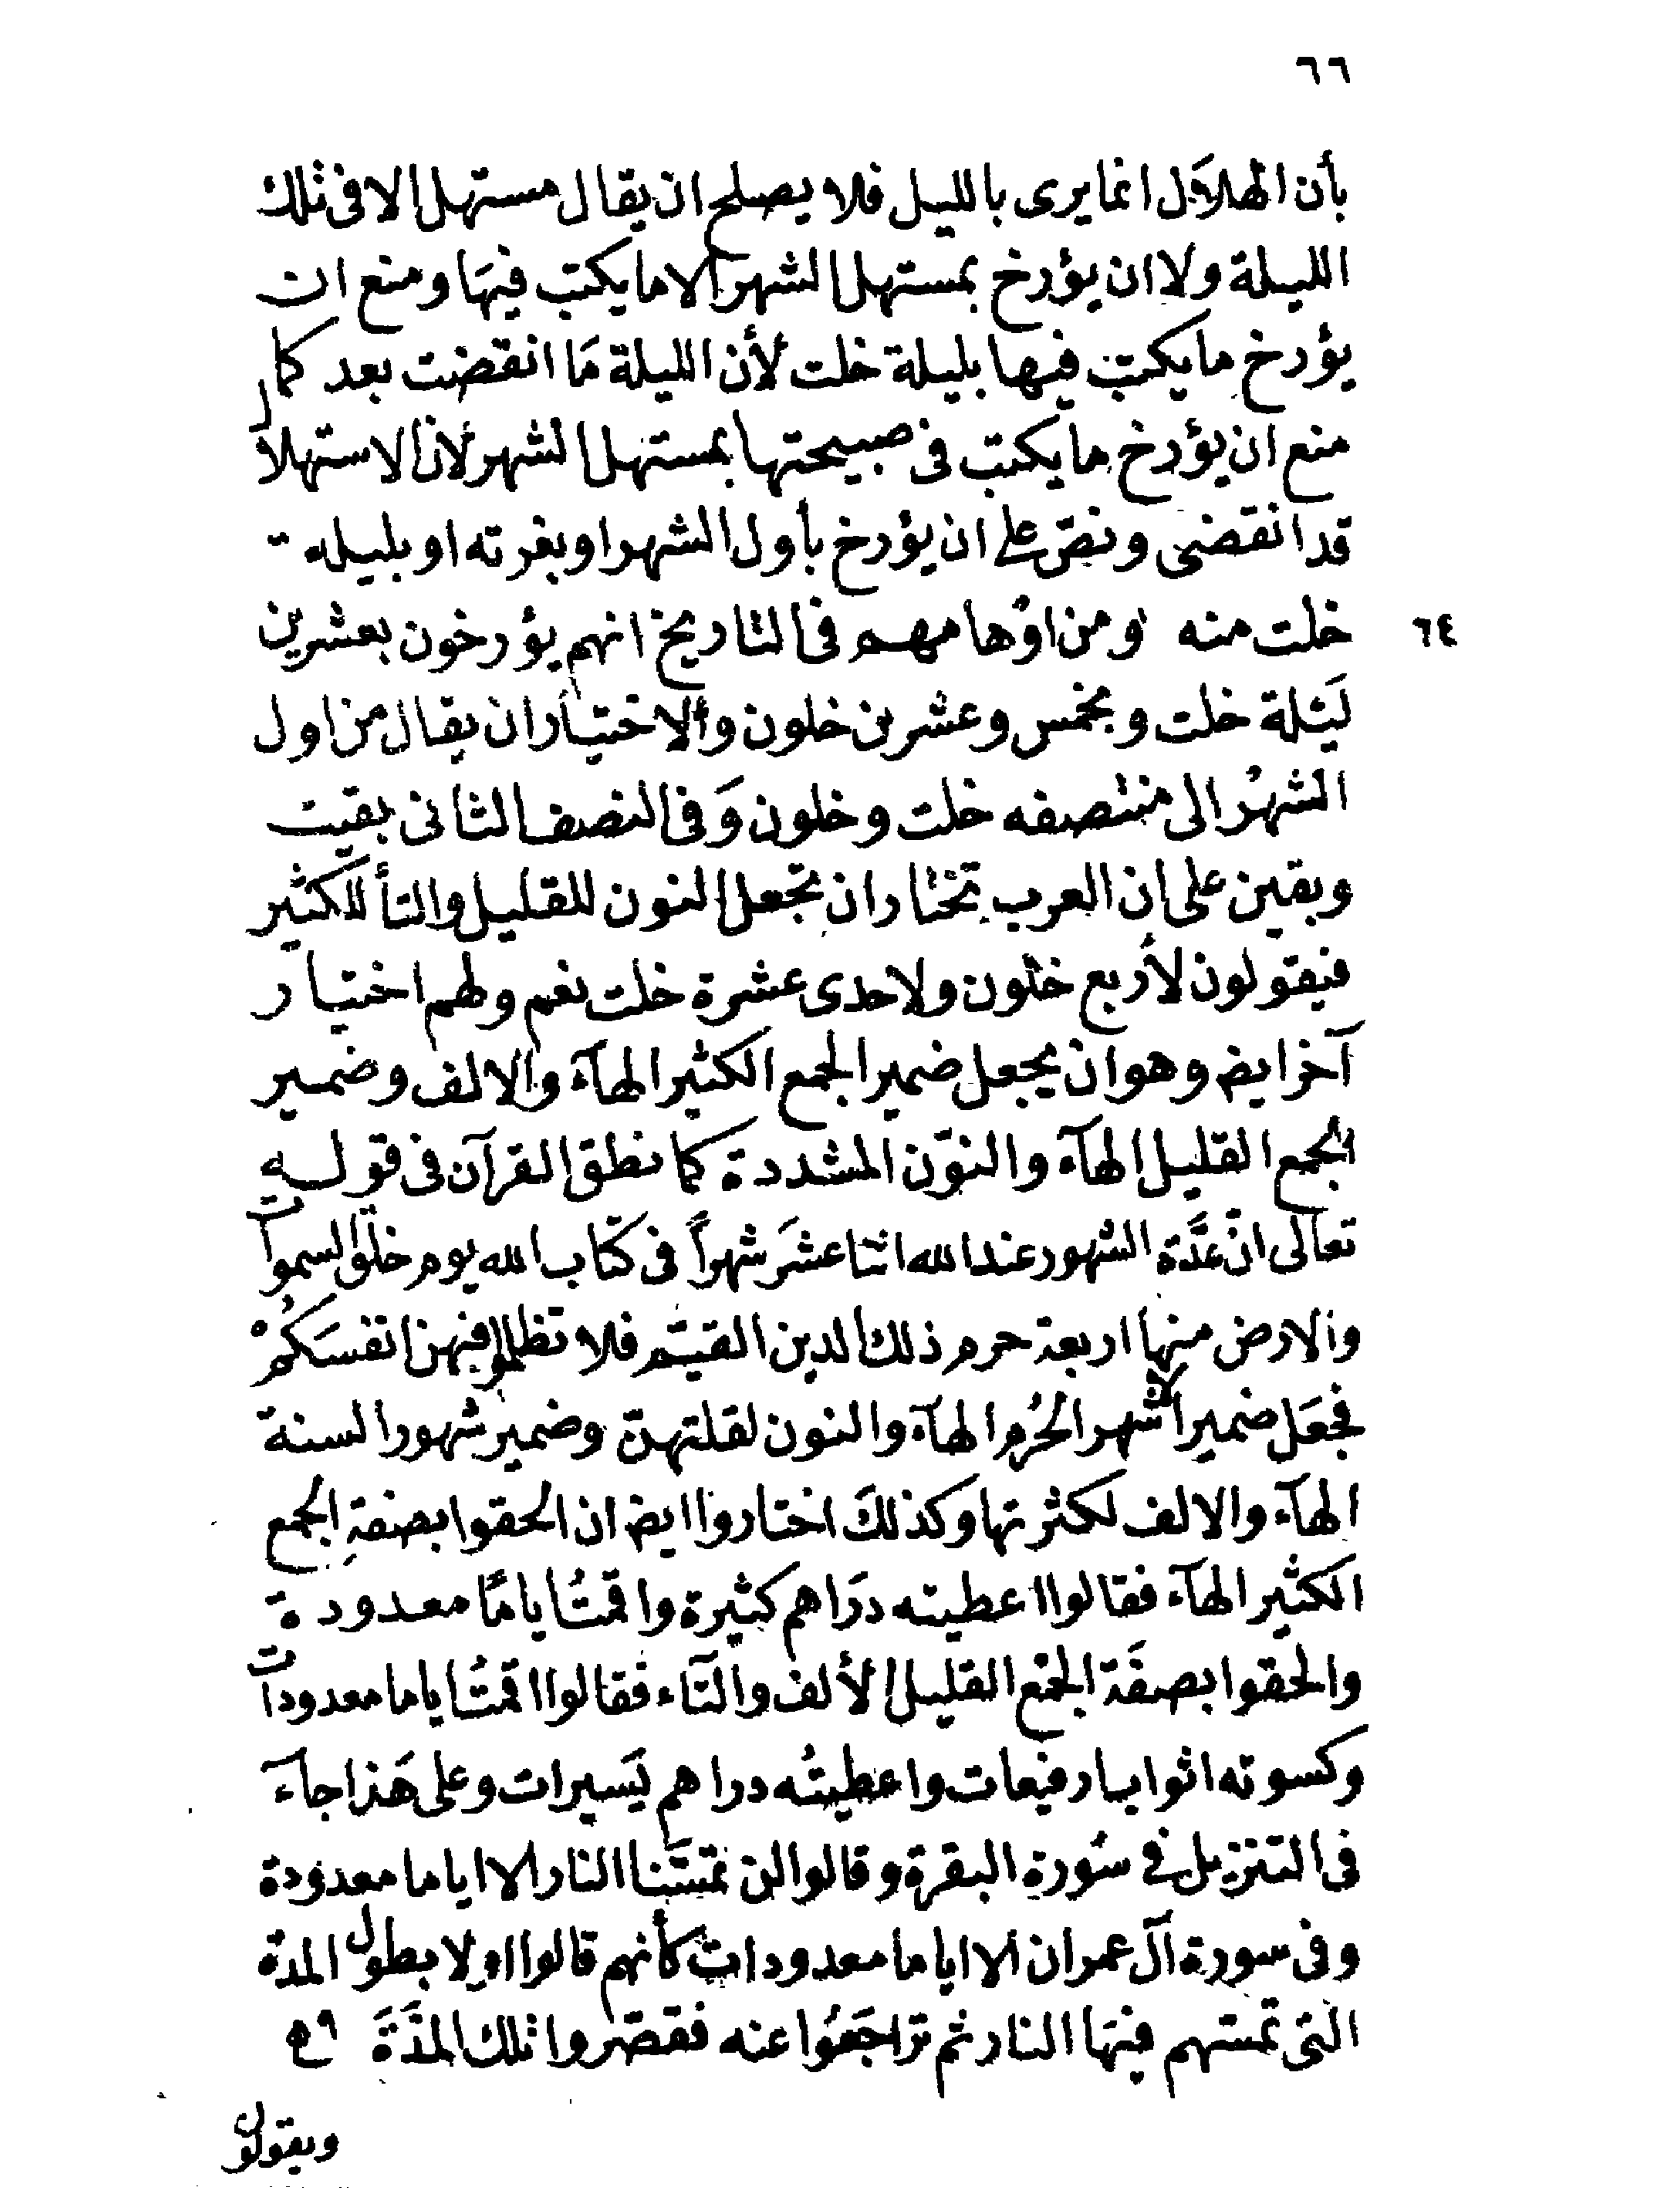 ٦٦
بأن الهلال انما يرى بالليل فلا يصلح ان يقال مستهل الا فى تلك
الليلة ولا ان يؤرخ بمستهل الشهر الا ما يكتب فيها ومنع ان
يؤرخ ما يكتب فيها بليلة خلت لأن الليلة مَا انقضت بعد كما
منع ان يؤرخ ما يكتب فى صبيحتها بمستهل الشهر لان الاستهلال
قد انقضى ونصّ على ان يؤرخ بأول الشهر او بغرته او بليلة
خلت منه ومن اوهامهم فى التاريخ انهم يؤرخون بعشرين
٦٤
لَيَلة خلت وبخمس وعشرين خلون والاختيار ان يقال من اول
الشهر الى منتصفه خلت وخلون وَفى النصف الثانى بقيت
وبقين على ان العرب تختار ان تجعل النون للقليل والتأ للكثير
فيقولون لأربع خلون ولاحدى عشرة خلت نعم ولهم اختيار
آخر ايض وهو ان يجعل ضمير الجمع الكثير الهآء والالف وضمير
الجمع القليل الهآء والنوّن المشددة كما نطق القرآن فى قوله
تعالى انّ عدَّة الشهور عند الله اثنا عشَر شهراً فى كتاب الله يوم خلق السموات
والارض منها اربعة حرم ذلك الدين القيّم فلا تظلموا فيهن انفسَكُمْ
فجعَل ضمير الاشهر الحُرم الهآء والنون لقلتهنّ وضمير شهور السنة
الهآء والالف لكثرتها وكذلكَ اختاروا ايض ان الحقوا بصفةِ الجمع
الكثير الهآء فقالوا اعطيته دَراهم كثيرة واقمتُ اياماً معدودة
والحقوا بصفَة الجمع القليل الألف والتآء فقالوا اقمتُ اياما معدودات
وكسوته اثوابا رفيعات واعطيتُه دراهم يَسيرات وعلى هَذا جآءَ
فى التنزيل في سُورة البقرة وقالوا لن تمسَّنا النار الا اياما معدودة
وفى سورة آل عمران الا اياما معدودات كأنهم قالوا اولا بطول المدة
التى تمسّهم فيهَا النار ثم تراجَعُوا عنه فقصّروا تلك المدَّةَ
ويقولون